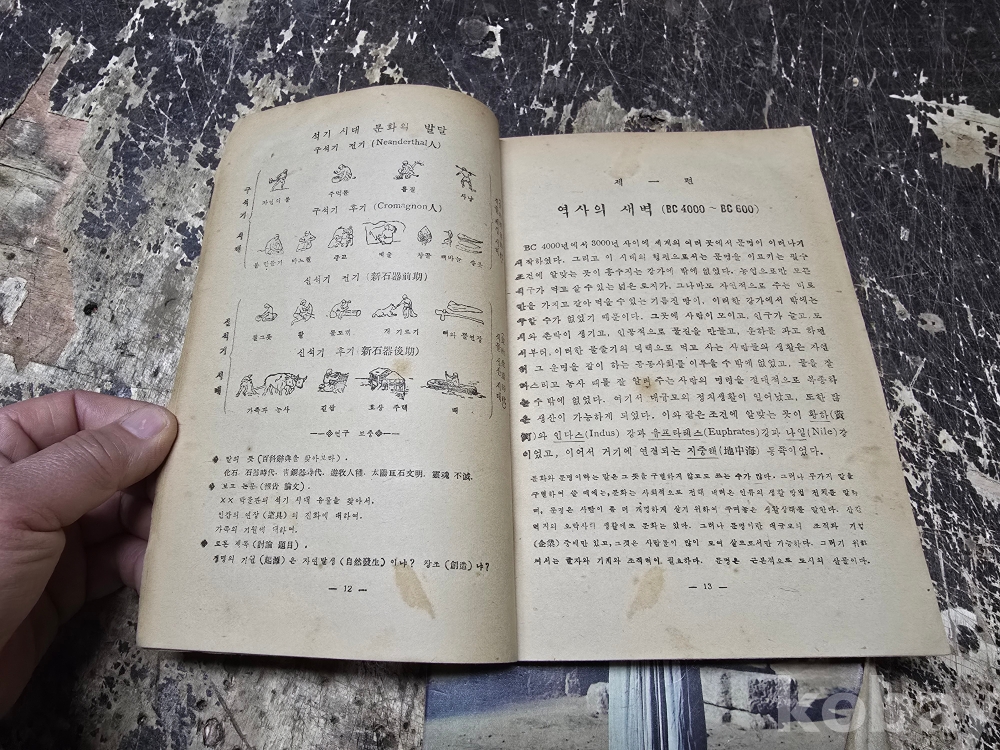 석기 시대 문화의 발달
구석기 전기 (Neanderthal人)
구석기 시대
자연식물 주먹돌 불질 사냥
구석기 후기 (Cromagnon人)
바느질 종교 예술 창끝
신석기 전기 (新石器前期)
신석기 시대
질그릇 활 돌도끼 개 기르기 뼈와 뿔연장
신석기 후기 (新石器後期)
가축과 농사 길쌈 호상 주택 배
연구 보충
◆ 말의 뜻 (百科辭典을 찾아보라).
化石, 石器時代, 靑銅器時代, 遊牧人種, 太陽巨石文明, 靈魂 不滅.
◆ 보고 논문 (報告 論文).
×× 박물관의 석기 시대 유물을 찾아서.
인간의 연장 (道具)의 진화에 대하여.
가족의 기원에 대하여.
◆ 토론 제목 (討論 題目).
생명의 기원 (起源)은 자연발생 (自然發生)이냐? 창조 (創造)냐?
— 12 —
제 一 편
역사의 새벽 (BC 4000 ~ BC 600)
BC 4000년에서 3000년 사이에 세계의 여러 곳에서 문명이 일어나기
시작하였다. 그리고 이 시대의 형편으로서는 문명을 이르키는 필수
조건에 알맞는 곳이 홍수지는 강가에 밖에 없었다. 농업으로만 모든
식구가 먹고 살 수 있는 넓은 토지가, 그나마도 자연적으로 주는 비료
만을 가지고 갈아 먹을 수 있는 기름진 땅이, 이러한 강가에서 밖에는
구할 수가 없었기 때문이다. 그곳에 사람이 모이고, 인구가 늘고, 도
시와 촌락이 생기고, 인공적으로 물길을 만들고, 운하를 파고 하면
서부터, 이러한 물줄기의 덕택으로 먹고 사는 사람들의 생활은 자연
히 그 운명을 같이 하는 공동사회를 이루을 수 밖에 없었고, 물을 잘
다스리고 농사 때를 잘 알려 주는 사람의 명령을 절대적으로 복종하
는 수 밖에 없었다. 여기서 대규모의 정치생활이 일어났고, 또한 많
은 생산이 가능하게 되었다. 이와 같은 조건에 알맞는 곳이 황하(黃
河)와 인다스(Indus) 강과 유프라테스(Euphrates)강과 나일(Nile)강
이었고, 이어서 거기에 연결되는 지중해(地中海) 동쪽이었다.
문화와 문명이라는 말은 그 뜻을 구별하지 않고도 쓰는 수가 많다. 그러나 두가지 말을
구별하여 쓸 때에는, 문화는 사회적으로 전해 내려온 인류의 생활 방법 전체를 말하
며, 문명은 사람이 좀 더 개명하게 살기 위하여 꾸며놓은 생활상태를 말한다. 산간
벽지의 오막사리 생활에도 문화는 있다. 그러나 문명이란 대규모의 조직과 기업
(企業) 중에만 있고, 그것은 사람들이 많이 모여 삶으로서만 가능하다. 그러기 위하
여서는 글자와 기계와 조직력이 필요하다. 문명은 근본적으로 도시의 산물이다.
— 13 —
kobay